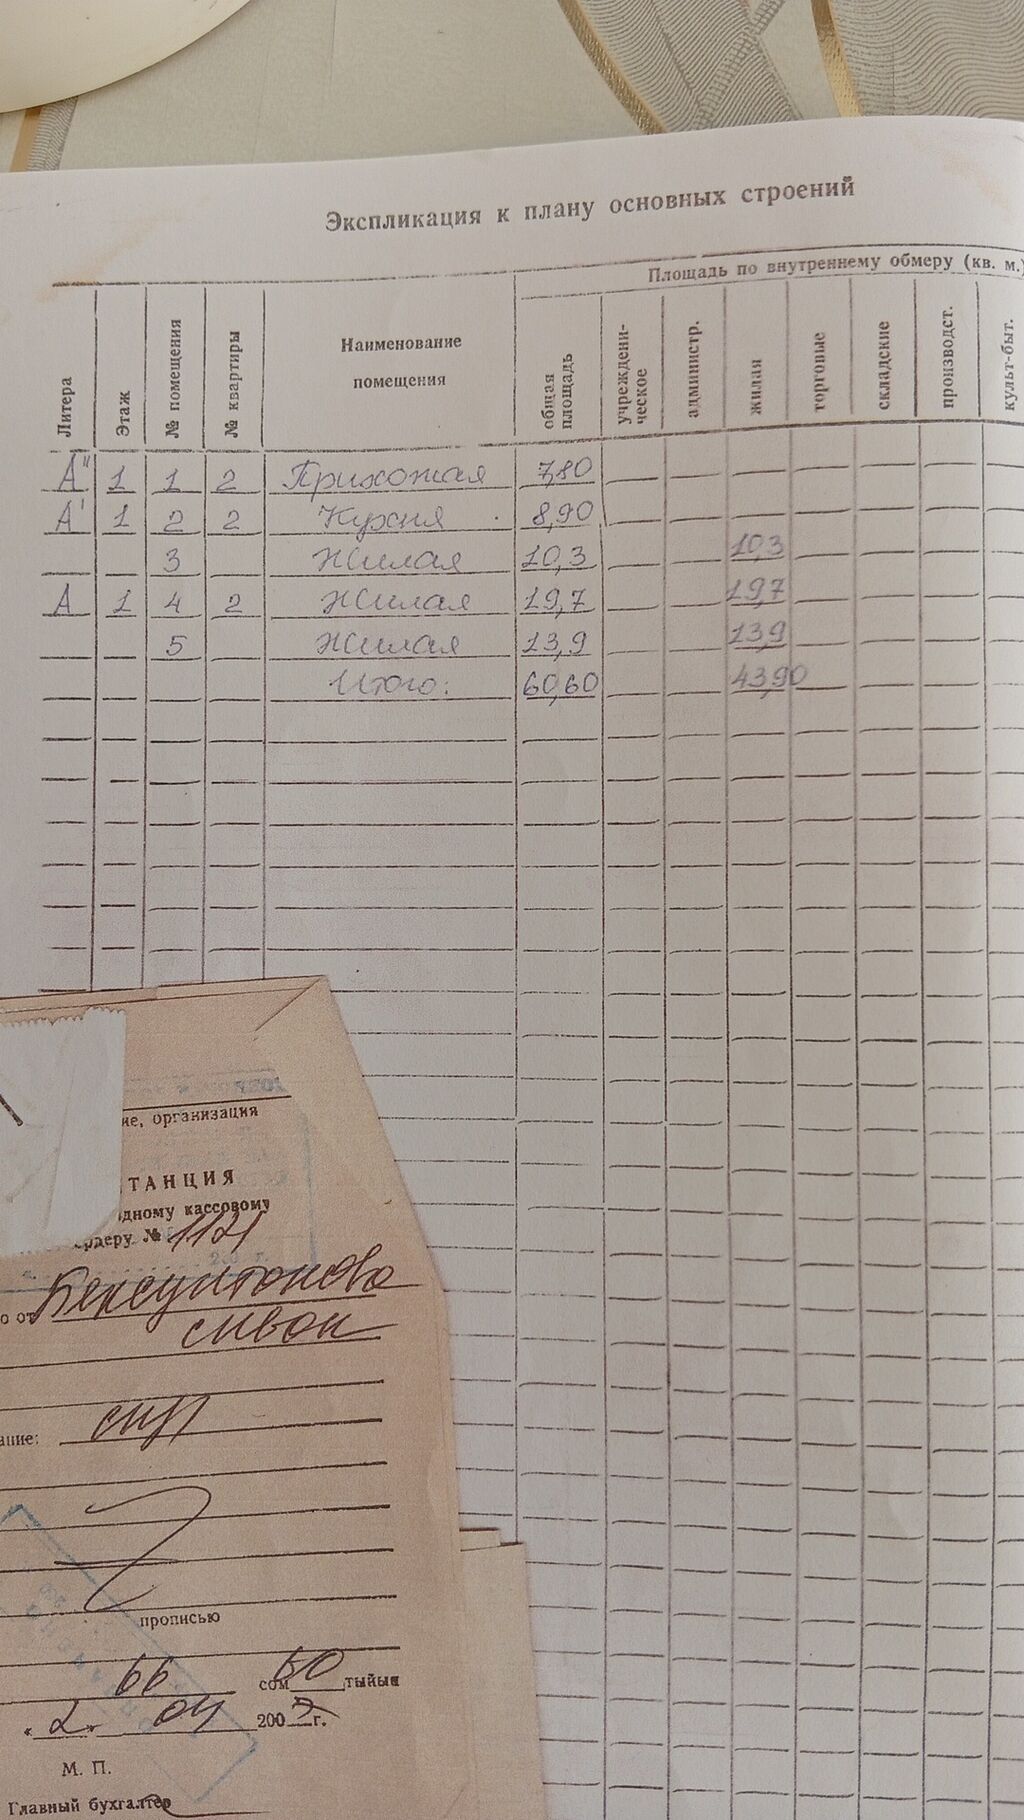 Экспликация к плану основных строений
Площадь по внутреннему обмеру (кв. м.)
Литера Этаж № помещения № квартиры Наименование помещения общая площадь учреждени-ческое администр. жилая торговые складские производст. культ-быт.
А" 1 1 2 Прихожая 7,80
А' 1 2 2 Кухня 8,90
3 Жилая 10,3 10,3
А 1 4 2 Жилая 19,7 19,7
5 Жилая 13,9 13,9
Итого: 60,60 43,90
ие, организация
ТАНЦИЯ
одному кассовому
ордеру № 1121
о от
ание:
прописью
66 сом 60 тыйын
"2" 04 200 г.
М. П.
Главный бухгалтер